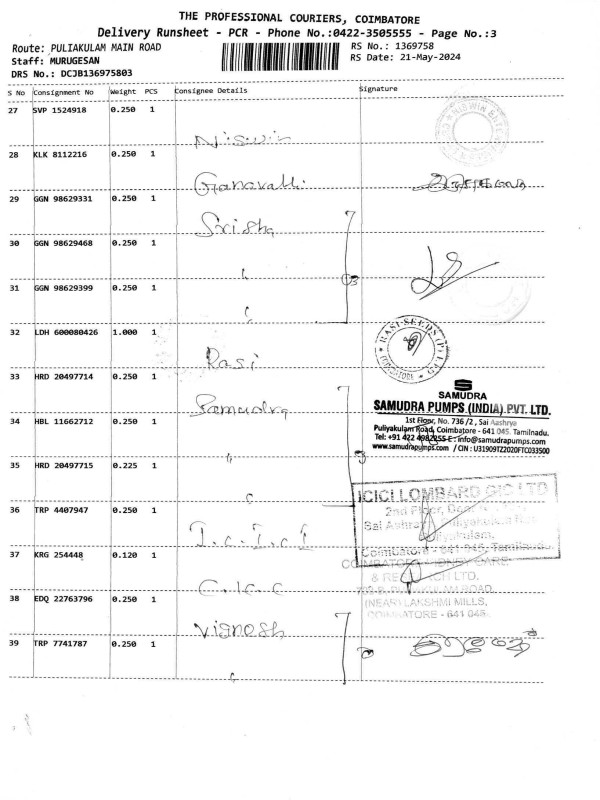 THE PROFESSIONAL COURIERS, COIMBATORE
Delivery Runsheet - PCR - Phone No.:0422-3505555 - Page No.:3
Route: PULIAKULAM MAIN ROAD
RS No.: 1369758
Staff: MURUGESAN
RS Date: 21-May-2024
DRS No.: DCJB136975803
S No Consignment No Weight PCS Consignee Details Signature
27 SVP 1524918 0.250 1
Niswin
28 KLK 8112216 0.250 1
Ganavalli
29 GGN 98629331 0.250 1
Srisha
30 GGN 98629468 0.250 1
"
03
31 GGN 98629399 0.250 1
"
32 LDH 600080426 1.000 1
Rasi
RASI SEEDS (P) LTD
COIMBATORE
33 HRD 20497714 0.250 1
Samudra
SAMUDRA
SAMUDRA PUMPS (INDIA) PVT. LTD.
1st Floor, No. 736 /2, Sai Aashrya
Puliyakulam Road, Coimbatore - 641 045. Tamilnadu.
Tel: +91 422 4982955 E : info@samudrapumps.com
www.samudrapumps.com / CIN : U31909TZ2020FTC033500
34 HBL 11662712 0.250 1
"
3
35 HRD 20497715 0.225 1
"
ICICI LOMBARD GIC LTD
2nd Floor,
36 TRP 4407947 0.250 1
I.c.I.c I
Coimbatore - 641 045, Tamilnadu.
37 KRG 254448 0.120 1
C.K.C
COIMBATORE KIDNEY CARE
& RESEARCH LTD.
(NEAR) LAKSHMI MILLS,
COIMBATORE - 641 045.
38 EDQ 22763796 0.250 1
Vignesh
39 TRP 7741787 0.250 1
"